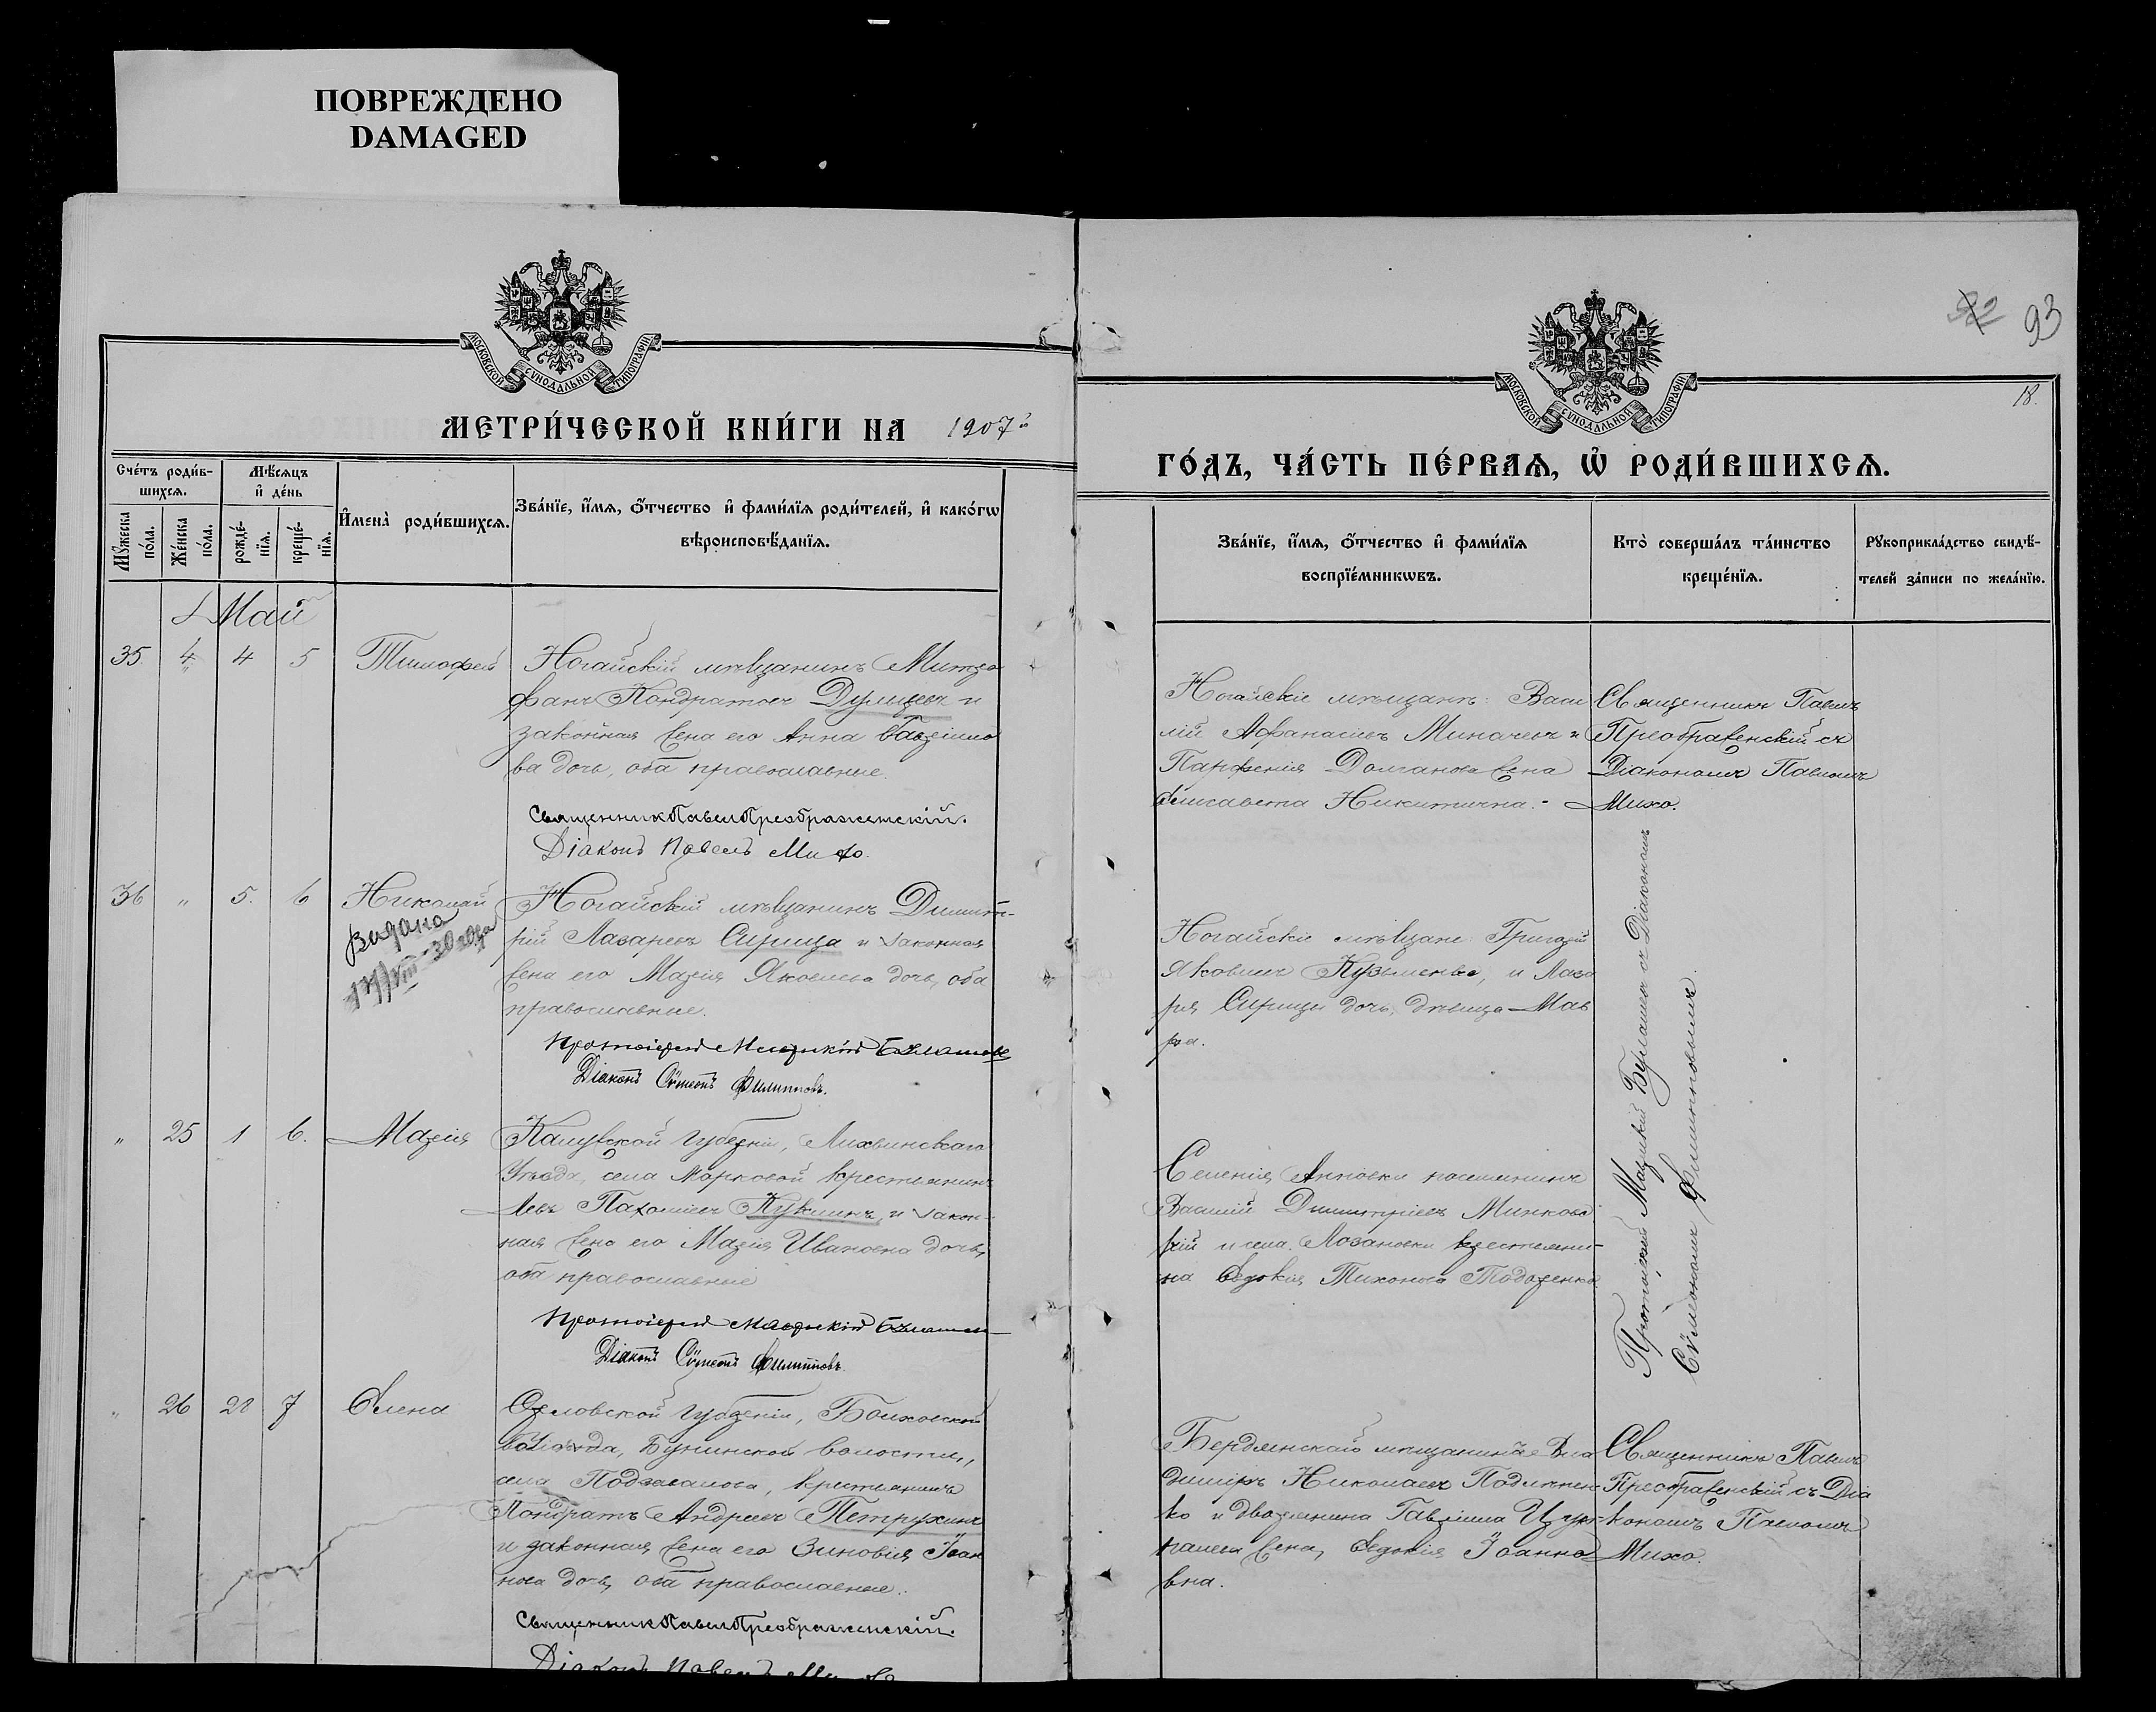 ПОВРЕЖДЕНО
DAMAGED
МОСКОВСКОЙ СѴНОДАЛЬНОЙ ТИПОГРАФІИ
МЕТРИ́ЧЕСКОЙ КНИ́ГИ НА 1907й
Сче́тъ роди́в-
шихсѧ.
Мѣ́сѧцъ
и҆ де́нь
Мꙋ́жеска
по́ла.
Же́нска
по́ла.
рожде́-
нїѧ.
креще́-
нїѧ.
И҆мена̀ роди́вшихсѧ.
Зва́нїе, и҆́мѧ, ѻ҆́тчество и҆ фами́лїѧ роди́телей, и҆ како́гѡ
вѣроисповѣ́данїѧ.
Май
35 4 5 Тимофей
Ногайскій мѣщанинъ Митро
фанъ Кондратьевъ и
законная жена его Анна Гавріило
ва дочь, оба православные.
Священникъ Павелъ Преображенскій.
Діаконъ Павелъ Михо.
36 " 5. 6 Николай
Видано
Ногайскій мѣщанинъ Димит-
рій Лазаревъ Сирица и законная
жена его Марія Яковлева дочь, оба
православные.
Протоіерей Маврикій
Діаконъ Сѵмеонъ Филипповъ.
" 25 1 6. Марія
Калужской губерніи, Лихвинскаго
уѣзда, села Марковой крестьянинъ
Левъ Пахомовъ Куклинъ, и закон-
ная жена его Марія Иванова дочь,
оба православные
Протоіерей Маврикій
Діаконъ Сѵмеонъ Филипповъ.
" 26 28 7 Елена
Орловской губерніи, Болховской
уѣзда, Бунинской волости,
села Подзавалова, крестьянинъ
Кондратъ Андреевъ Петрухинъ
и законная жена его Зиновія Іоан
нова дочь, оба православные.
Священникъ Павелъ Преображенскій.
Діаконъ Павелъ Михо
92 93
18.
МОСКОВСКОЙ СѴНОДАЛЬНОЙ ТИПОГРАФІИ
ГО́ДЪ, ЧА́СТЬ ПЕ́РВАѦ, Ѡ҆ РОДИ́ВШИХСѦ.
Зва́нїе, и҆́мѧ, ѻ҆́тчество и҆ фами́лїѧ
воспрїе́мникѡвъ.
Кто̀ соверша́лъ та́инство
креще́нїѧ.
Рꙋкоприкла́дство свидѣ́-
телей за́писи по жела́нїю.
Ногайскіе мѣщане: Васи
лій Афанасіевъ Миначевъ и
Парфенія Долганова жена
Елисавета Никитична.-
Священникъ Павелъ
Преображенскій съ
Діакономъ Павломъ
Михо.
Ногайскіе мѣщане: Григорій
Яковлевъ Кузьменко, и Лаза
ря Сирицы дочь, дѣвица Мав
ра.
Селенія Анновки поселянинъ
Василій Димитріевъ Минков
скій и села Лозановки крестьян-
ка Евдокія Тихонова Тодоренко
Протоіерей Маврикій съ Діакономъ
Сѵмеономъ Филипповымъ.
Бердянскаго мѣщанина Вла
диміръ Николаевъ
ко и дворянина Гавріила
жена, Евдокія Іоанно-
вна.
Священникъ Павелъ
Преображенскій съ Діа
кономъ Павломъ
Михо.